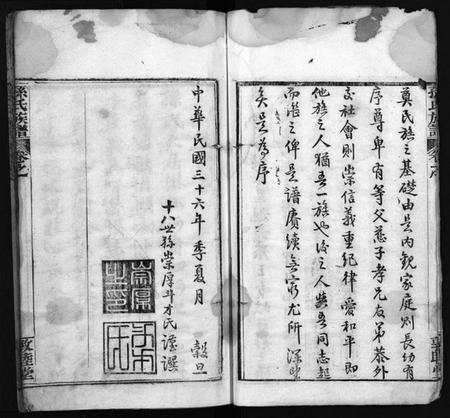 奠民族之基礎由是內觀家庭則長幼有
序尊卑有等父慈子孝兄友弟恭外
交社會則崇信義重紀律愛和平即
他族之人猶吾一族也後之人與吾同志起
而漸之俾是譜賡續無窮尤所深望
矣是為序
孫氏族譜
卷之
中華民國三十六年季夏月 穀旦
十八世孫崇厚斗才氏謹譔
崇厚之印
孫氏族譜
卷之
敦睦堂